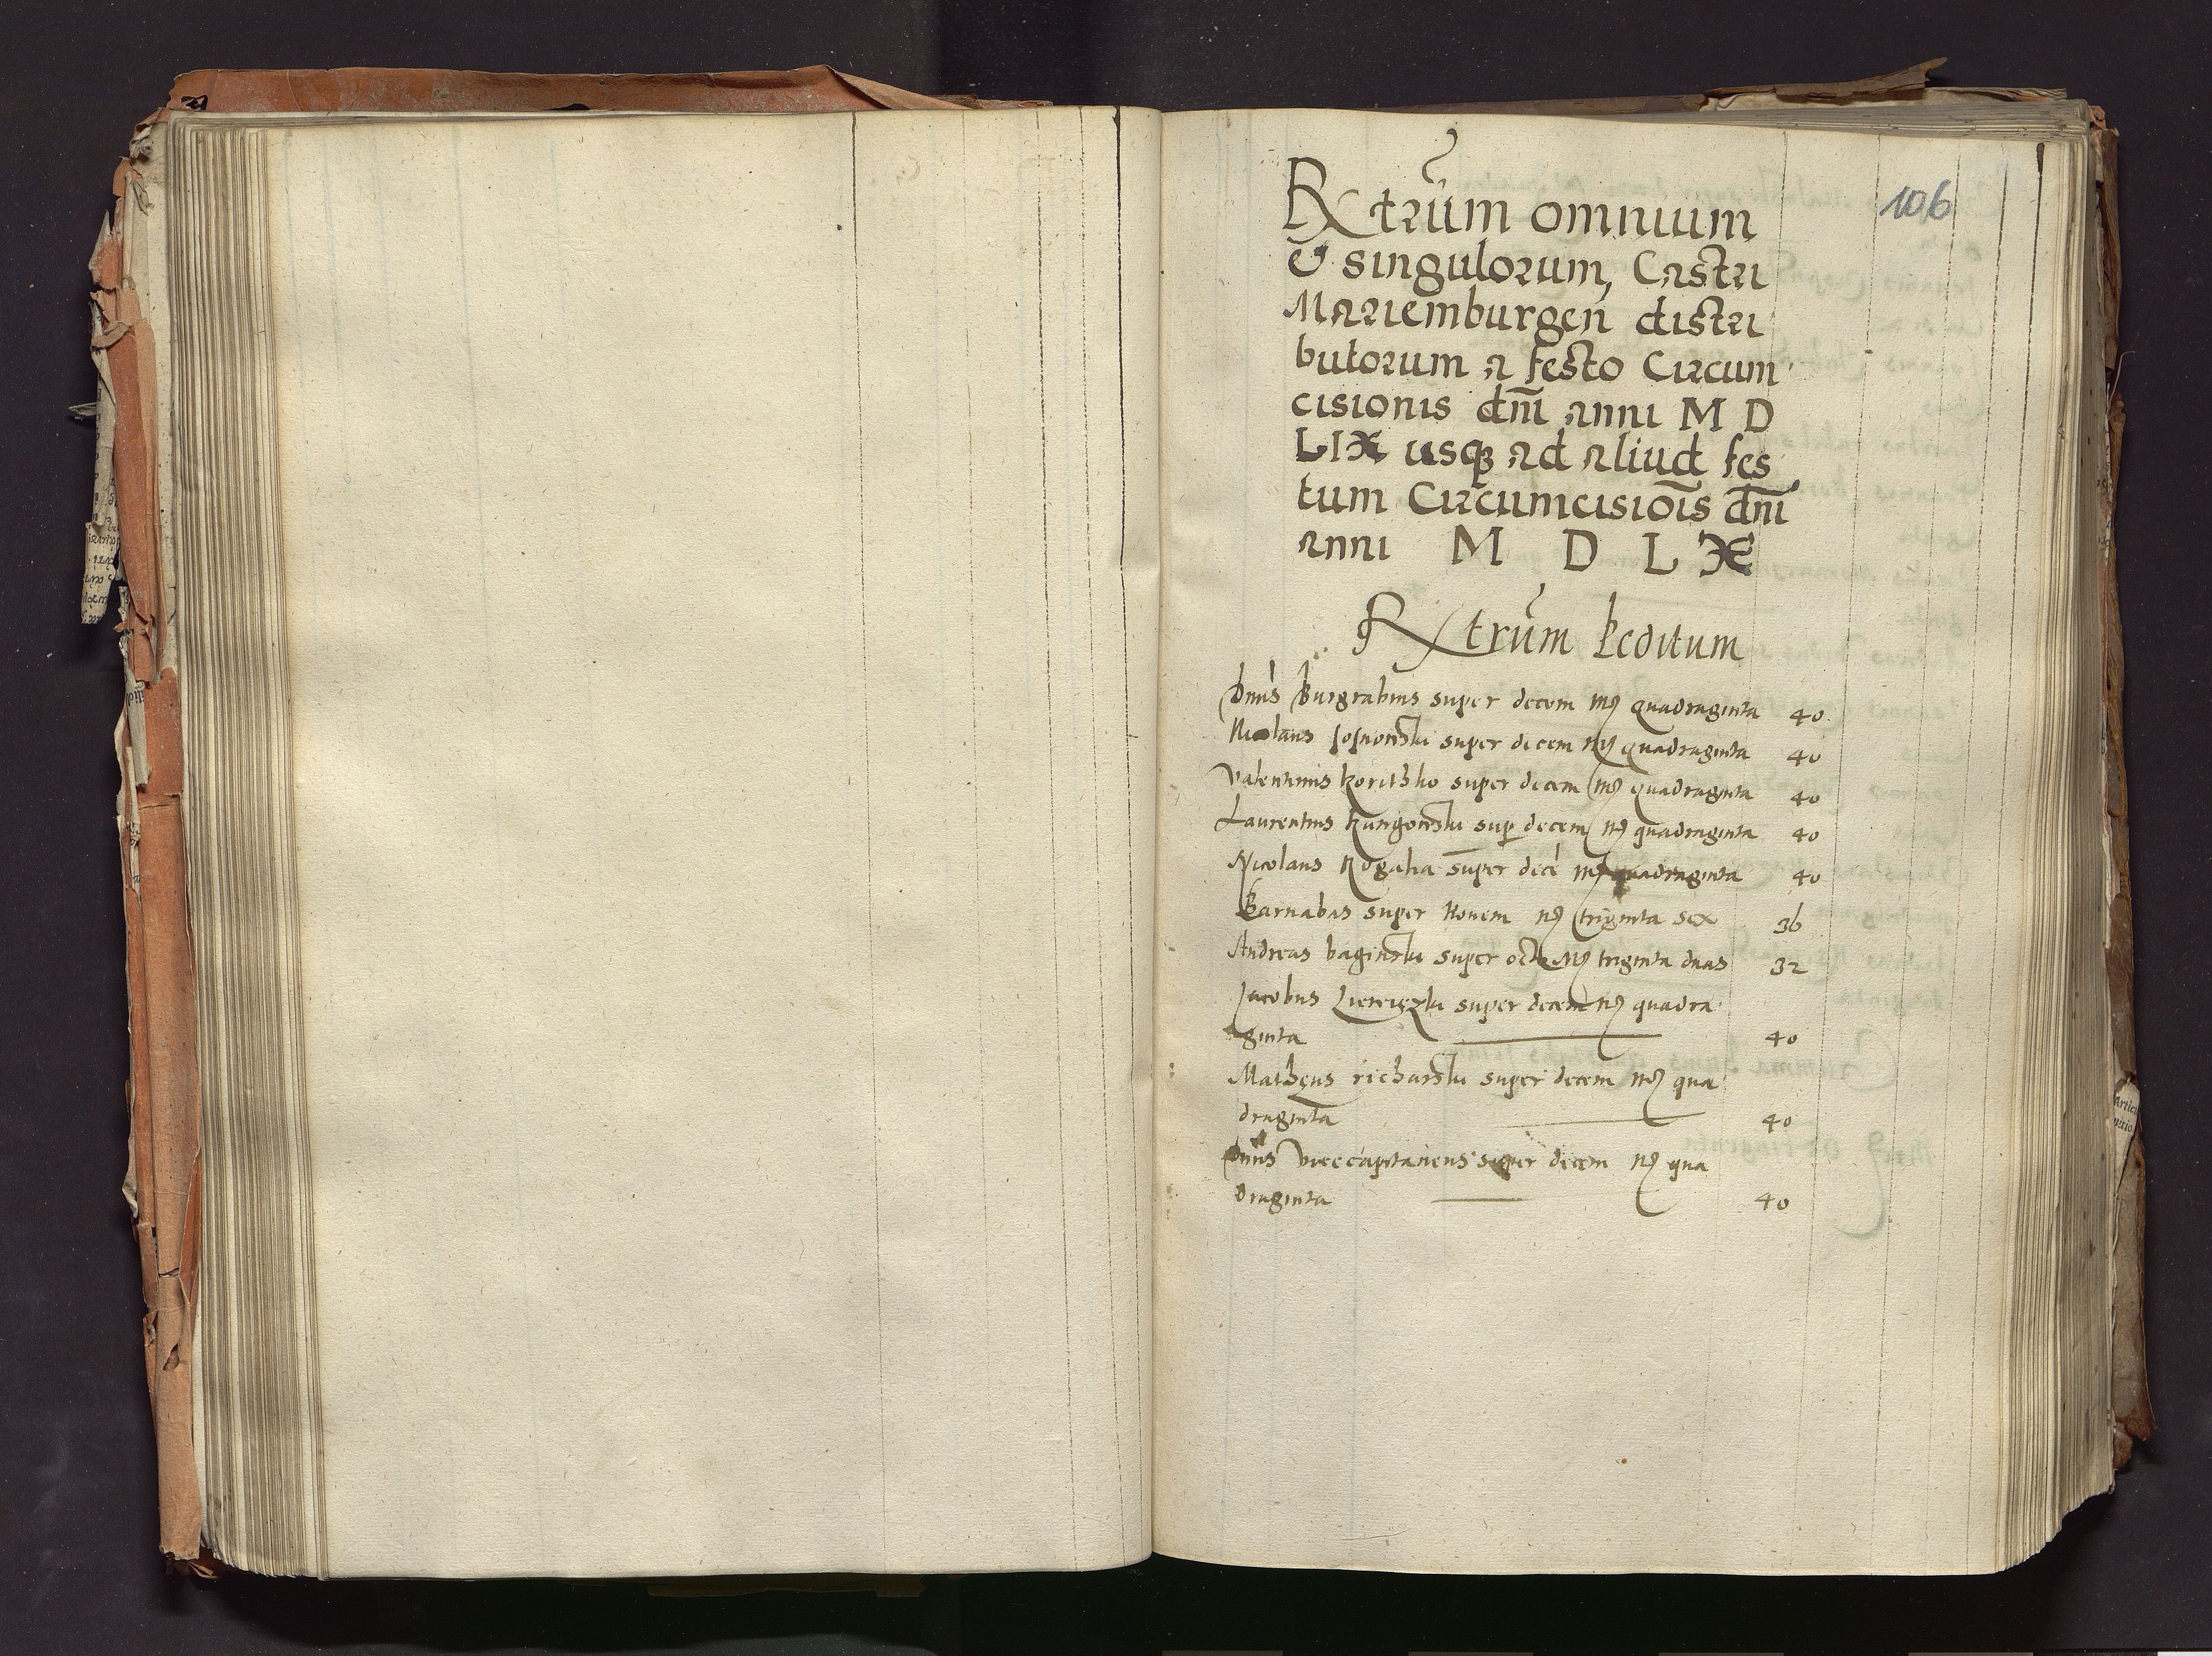 106
Rxtrūm omnium
& singulorum, Castri
Mariemburgeń distri
butorum a festo Circum
cisionis dn̄i anni M D
LIX usq3 ad aliud fes
tum Circumcisiōis dn̄i
anni M D L X
Rxtrūm peditum
Dnus Burgrabius super decem mͻ quadraginta 40
Nicolaus super decem mͻ quadraginta 40
Valentinus koritzko super decem mͻ quadraginta 40
Laurentius sup decem mͻ quadraginta 40
Nicolaus Rogalia super decē mͻ quadraginta 40
Barnabas super Nouem mͻ triginta sex 36
Andreas baginski super octo mͻ triginta duas 32
Jacobus super decem mͻ quadra
ginta 40
Matheus super decem mͻ qua
draginta 40
Dnus Vicecapitaneus super decem mͻ qua
draginta 40